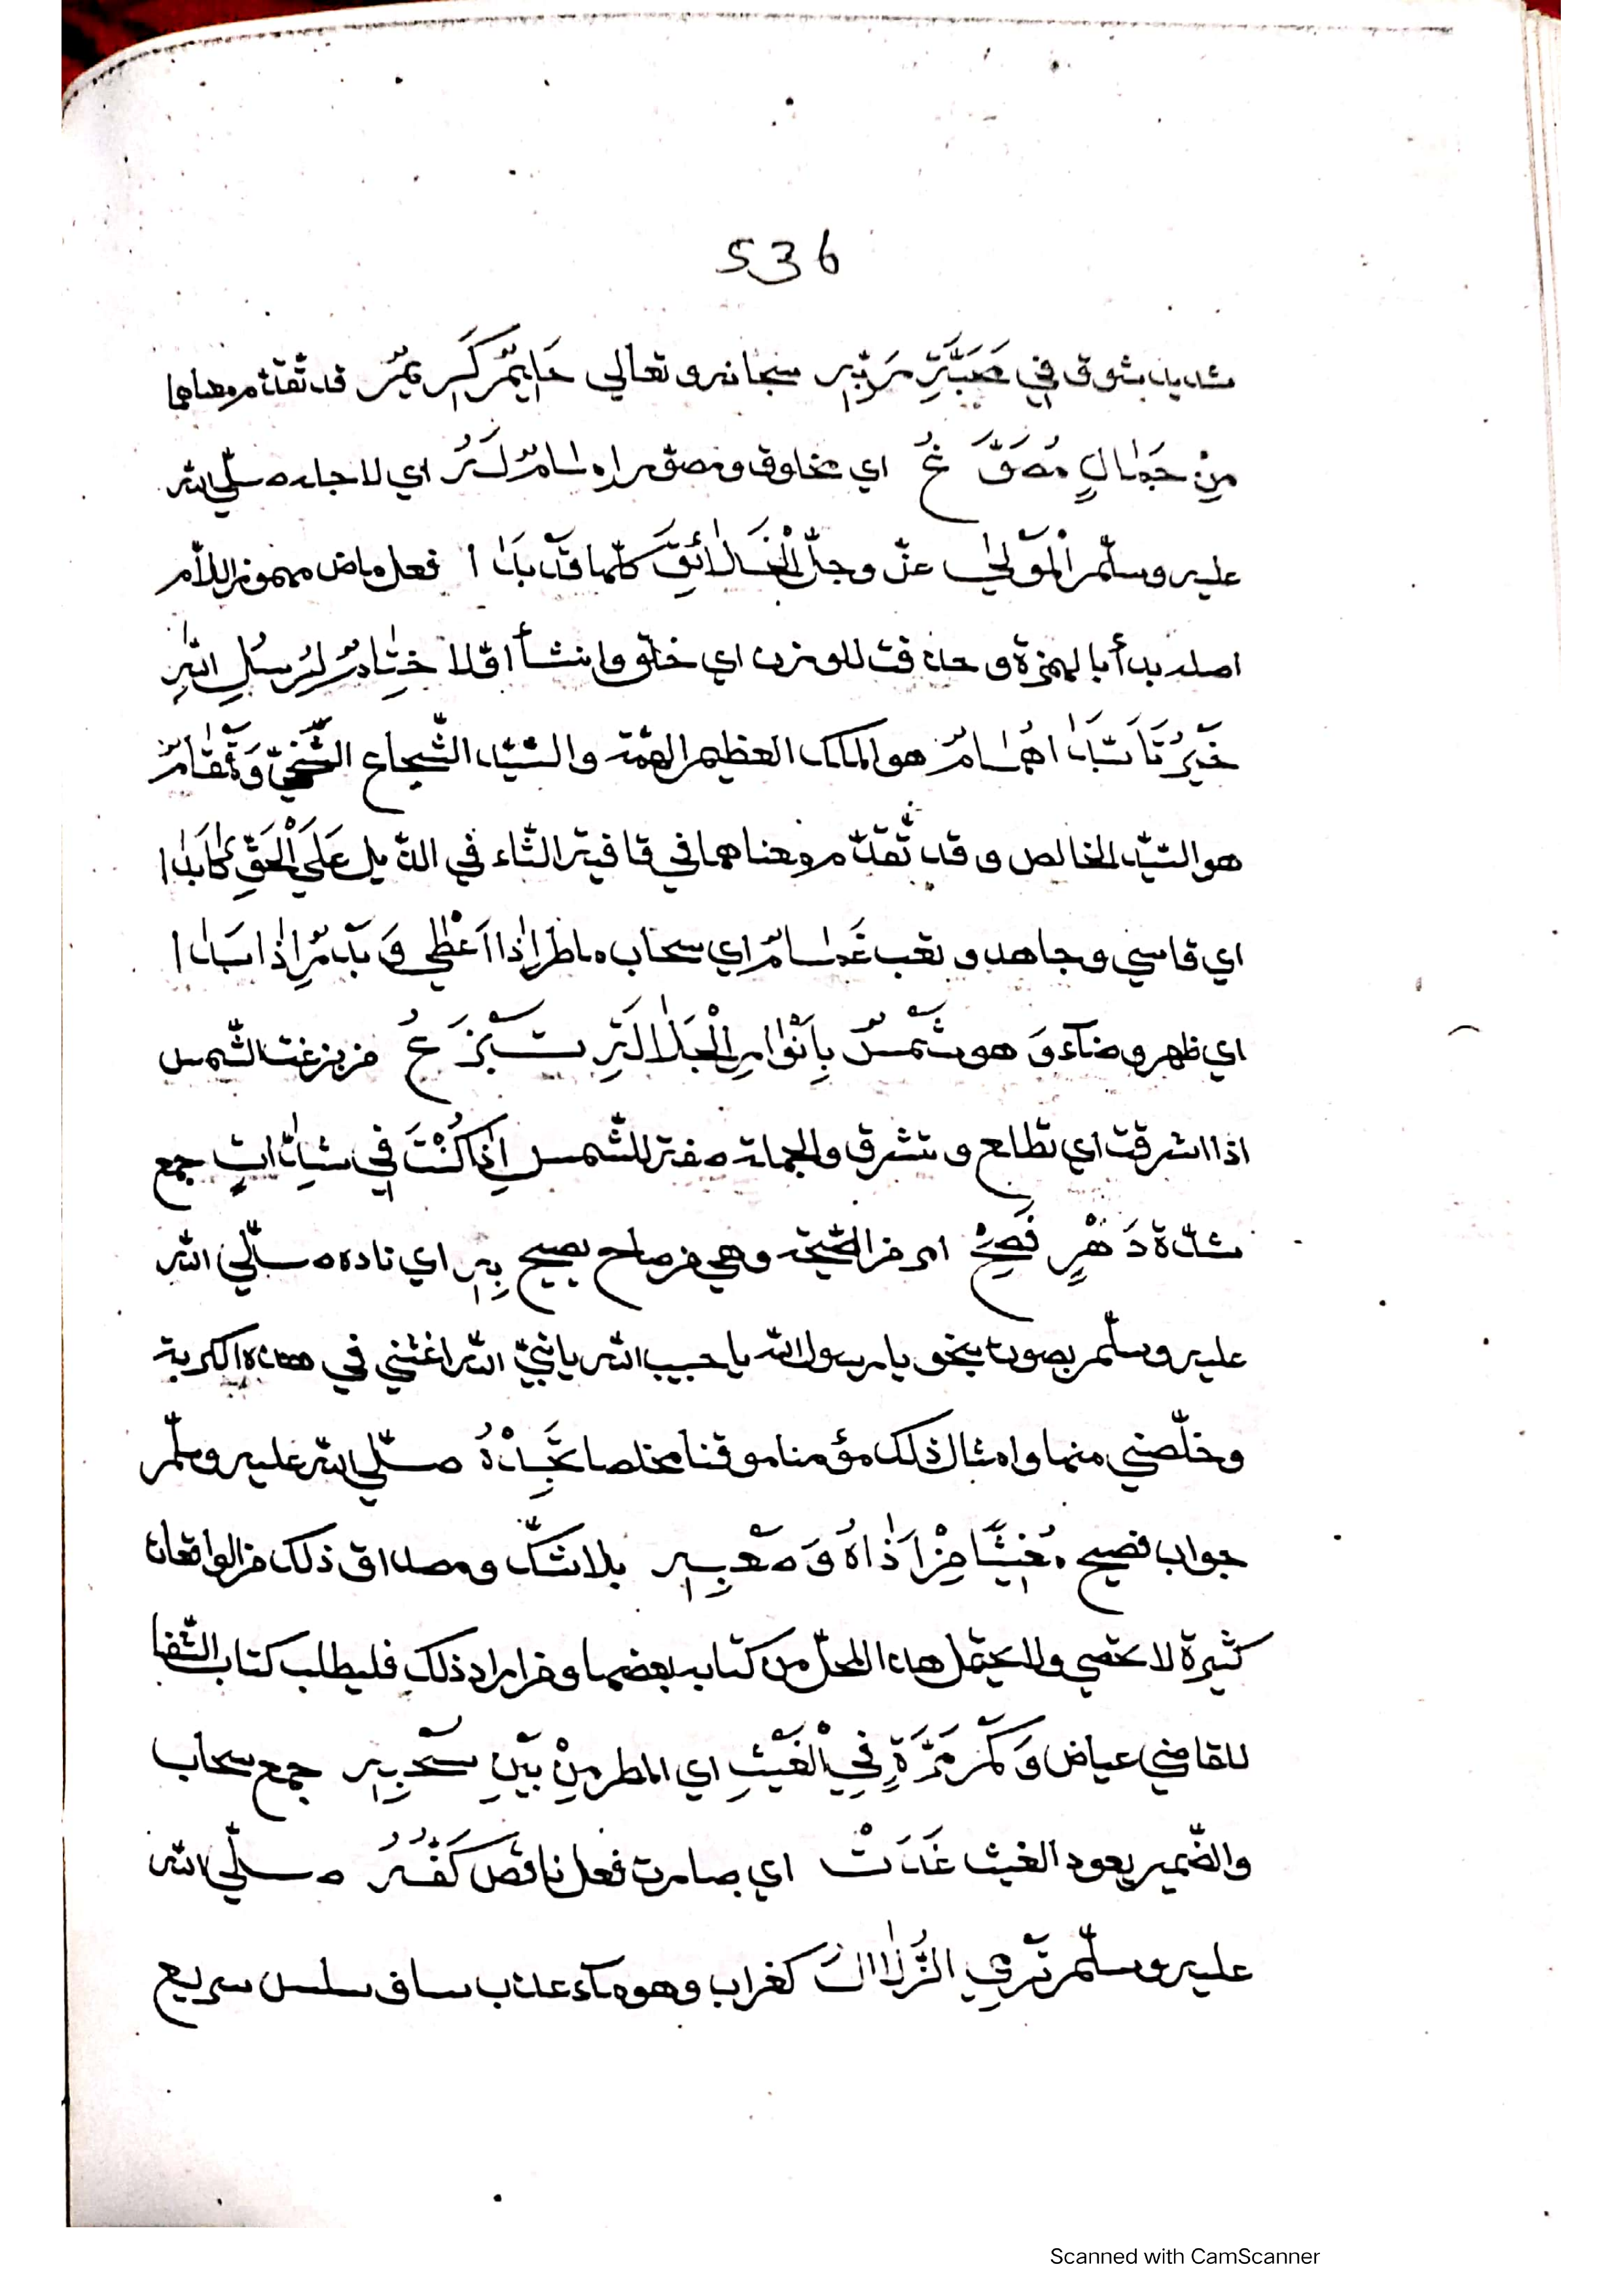 536
شديد بشوق في مَحَبَّةِ رَبِّهِ سبحانه وتعالى حَلِيمٌ كَرِيمٌ قد تقدّم معناهما
مِنْ جَمَالٍ مُصَوَّغُ اي مخلوق ومصوّر إمامٌ لَهُ اي لاجله صلّي الله
عليه وسلّم الْمَوْلَى عزّ وجلّ الْخَلَائِقَ كلّها قَدْ بَدَا فعل ماض مهموز اللّام
اصله بدأ بالهمزة وحذفت للوزن اي خلق وانشأ اوّلا خِتَامٌ لِرُسُلِ اللهِ
خَيْرٌ تَأَبَّدَا هُمَامٌ هو الملك العظيم الهمّة والسّيّد الشّجاع السّخيّ وَقَمْقَامٌ
هو السّيّد الخالص وقد تقدّم معناهما في قافية الثّاء في الذّيل عَلَى الْحَقِّ كَابَدَا
اي قاسي وجاهد وتعب غَمَامٌ اي سحاب ماطر إِذَا أَعْطَى وَبَدْرٌ إِذَا بَدَا
اي ظهر وضآء وَ هو شَمْسٌ بِأَنْوَارِ الْجَلَالَةِ تَبْزَغُ من بزغت الشّمس
اذا اشرقت اي تطلع وتشرق والجملة صفة للشّمس إِذَا كُنْتَ فِي شِدَّاتِ جمع
شدّة دَهْرٍ فَصِحْ امر من الصّيحة وهي من صاح يصيح بِهِ اي ناده صلّي الله
عليه وسلّم بصوت بنحو يا رسول الله يا حبيب الله يا نبيّ الله اغثني في هذه الكربة
وخلّصني منها وامثال ذلك مؤمنا موقنا مخلصا تَجِدْهُ صلّي الله عليه وسلّم
جواب فصيح مُغِيثًا مِنْ أَذَاهُ وَصَعْبِهِ بلا شكّ ومصداق ذلك من الواقعات
كثيرة لا تحصي ولا يحتمل هذا المحلّ من كتابه بعضها ومن اراد ذلك فليطلب كتاب الشّفا
للقاضي عياض وَكَمْ مَرَّةٍ فِي الْغَيْثِ اي المطر مِنْ بَيْنِ سُحْبِهِ جمع سحاب
والضّمير يعود الغيث غَدَتْ اي صارت فعل ناقص كَفُّهُ صلّي الله
عليه وسلّم تَرْمِي الزُّلَالَ كغراب وهو مآء عذب صاف سلس سريع
Scanned with CamScanner